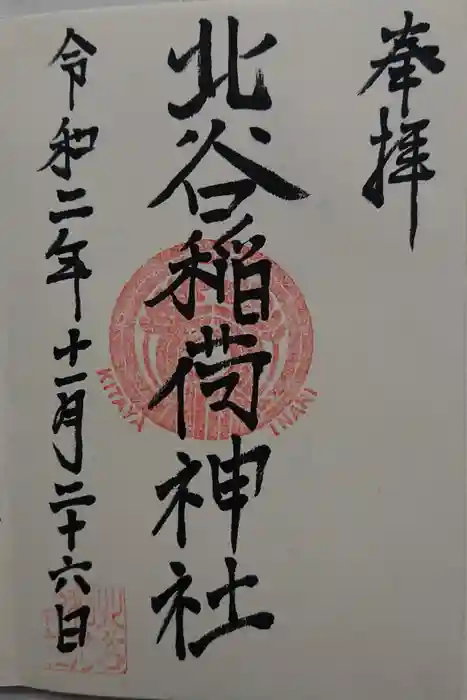 奉拝
北谷稲荷神社
KITAYA INARI
令和二年十一月二十六日